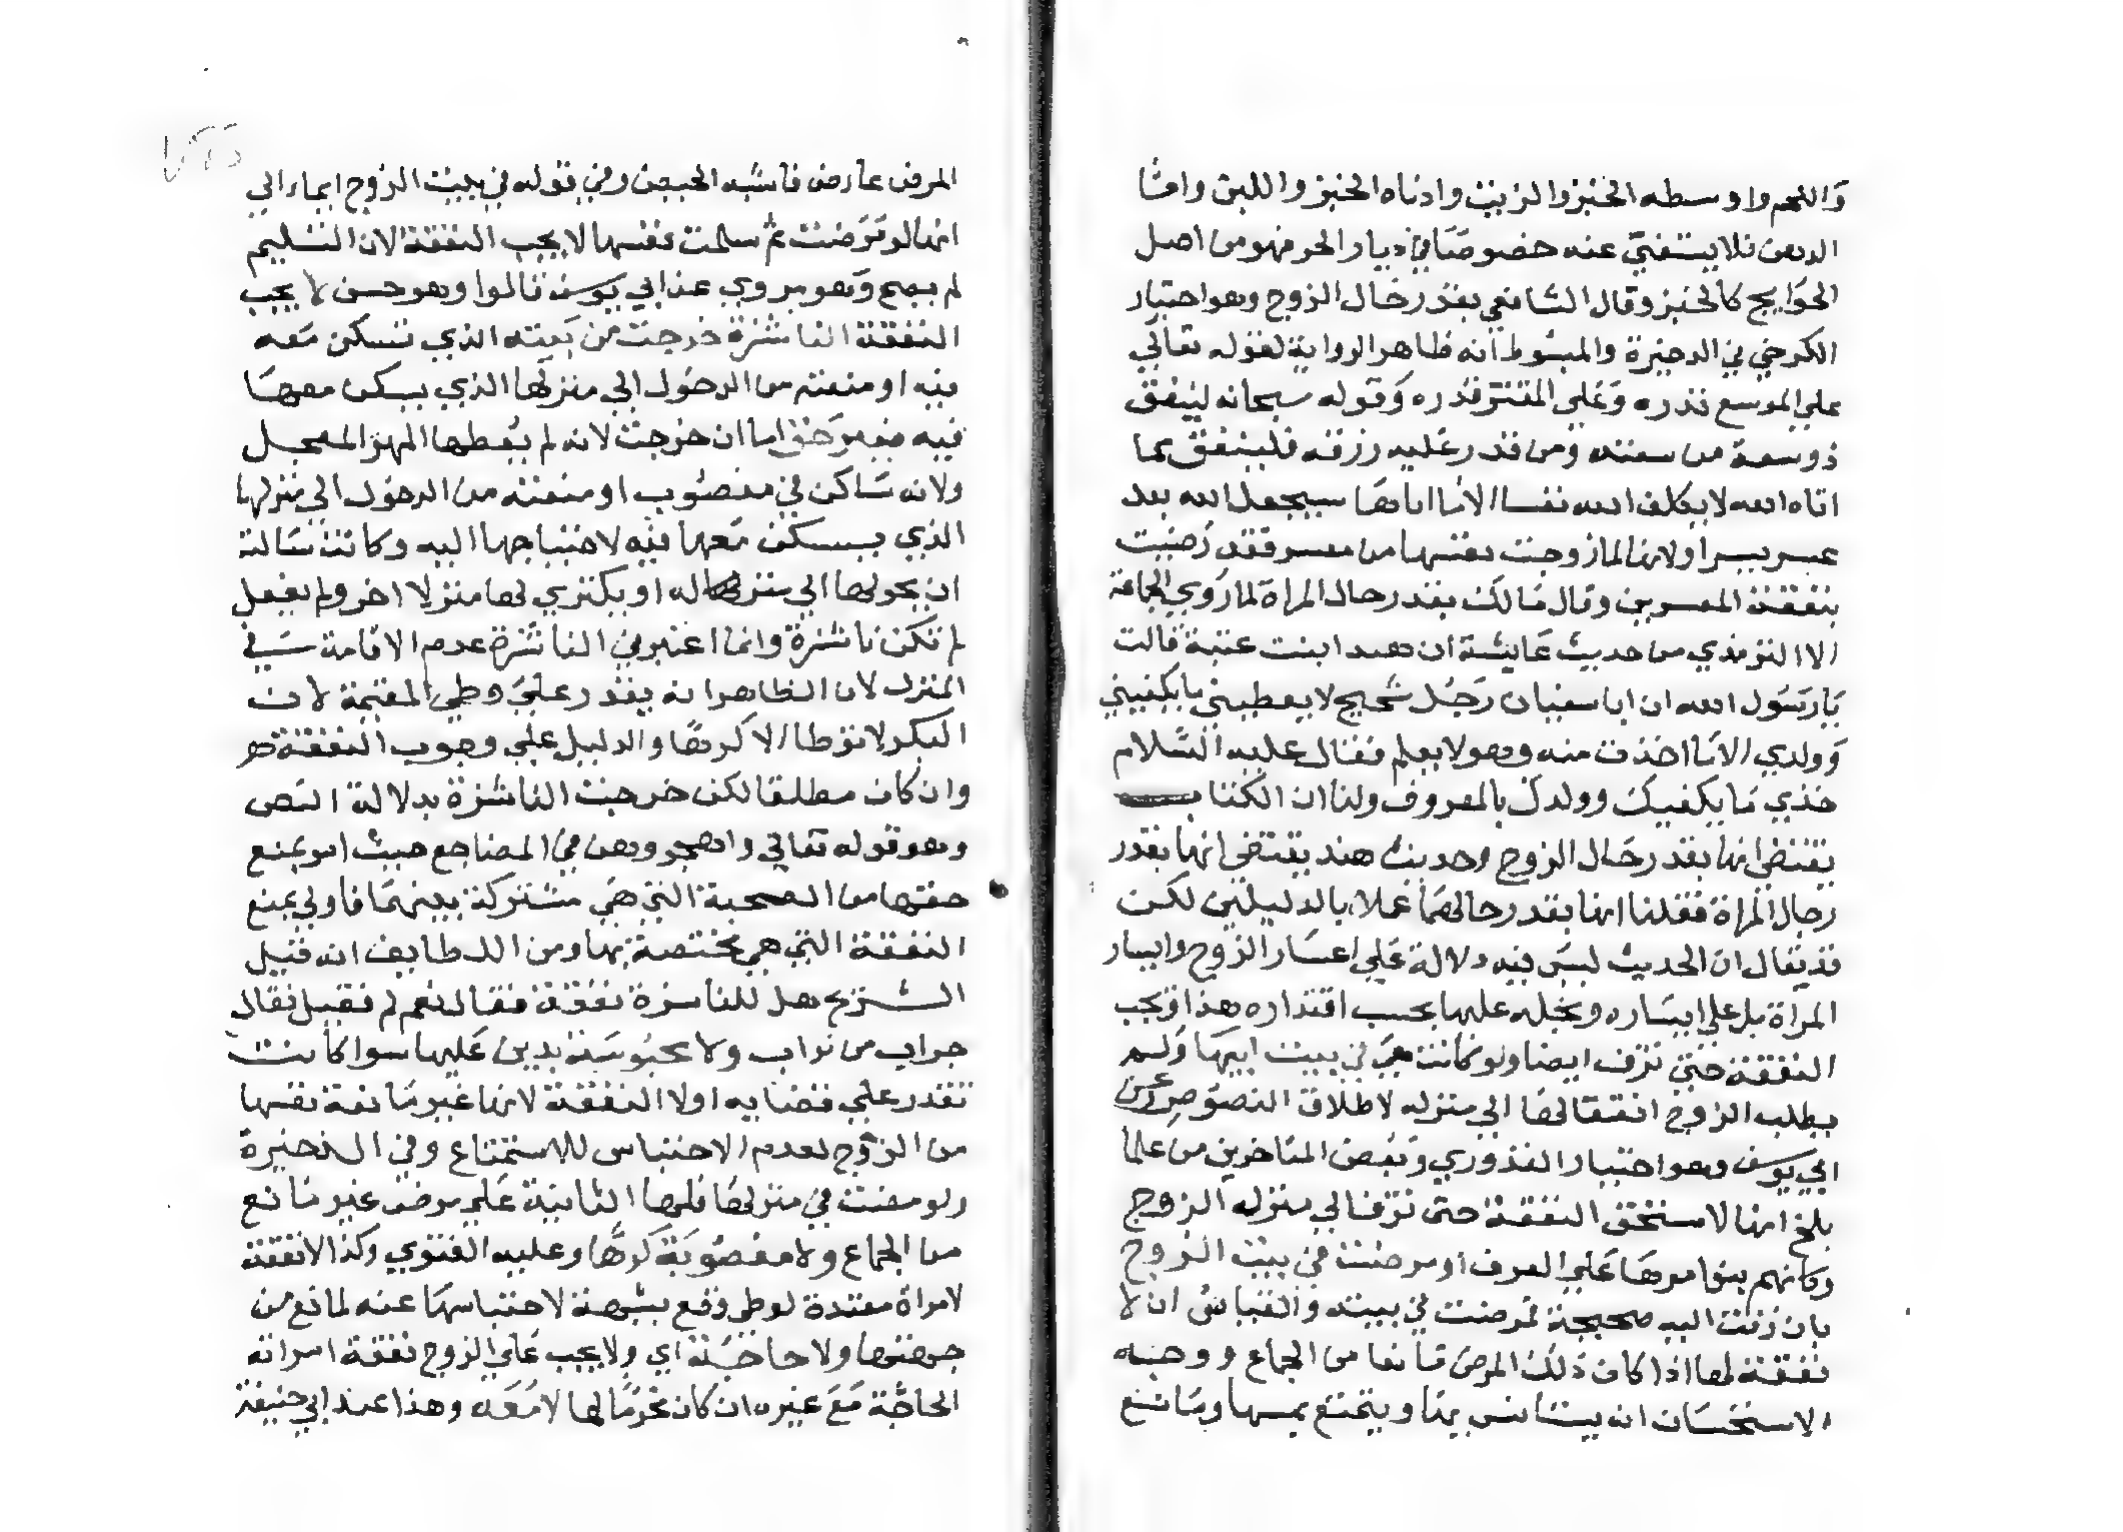 واللحم واوسطه الخبز والزيت وادناه الخبز واللبن واما
الدهن فلا يستغني عنه خصوصا في ديار الحر فهو من اصل
الحوايج كالخبز وقال الشافعي بقدر حال الزوج وهو اختيار
الكرخي في الدخيرة والمبسوط انه ظاهر الرواية لقوله تعالي
علي الموسع قدره وعلي المقتر قدره وقوله سبحانه لينفق
ذو سعة من سعته ومن قدر عليه رزقه فلينفق مما
اتاه الله لا يكلف الله نفسا الا ما اتاها سيجعل الله بعد
عسر يسرا ولانها لما زوجت نفسها من معسر فقد رضيت
بنفقة المعسرين وقال مالك بقدر حال المراة لما روي الجماعة
الا الترمذي من حديث عايشة ان هندا بنت عتبة قالت
يا رسول الله ان ابا سفيان رجل شحيح لا يعطيني ما يكفيني
وولدي الا ما اخذت منه وهو لا يعلم فقال عليه السلام
خذي ما يكفيك وولدك بالمعروف ولنا ان الكتاب
يقتضي انها بقدر حال الزوج وحديث هند يقتضي انها بقدر
حال المراة فقلنا انها بقدر حالهما عملا بالدليلين لكن
قد يقال ان الحديث ليس فيه دلالة علي اعسار الزوج وايسار
المراة بل علي ايساره وبخله عليها بحسب اقتداره هذا وتجب
النفقة حتي تزف ايضا ولو كانت هي في بيت ابيها ولم
يطلب الزوج انتقالها الي منزله لاطلاق النصوص وعن
ابي يوسف وهو اختيار القدوري وبعض المتاخرين من علما
بلخ انها لا تستحق النفقة حتي تزف الي منزله الزوج
وكانهم بنوا امرها علي العرف او مرضت في بيت الزوج
بان زفت اليه صحيحة ثم مرضت في بيته والقياس ان لا
نفقة لها اذا كان ذلك المرض مانعا من الجماع ووجه
الاستحسان انه يستانس بها ويتمتع بمسها ومانع
المرض عارض فاشبه الحيض وفي قوله في بيت الزوج ايماء الي
انها لو مرضت ثم سلمت نفسها لا يجب النفقة لان التسليم
لم يصح وهو مروي عن ابي يوسف قالوا وهو حسن لا يجب
النفقة الناشزة خرجت من بيته الذي تسكن معه
فيه او منعته من الدخول الي منزلها الذي يسكن معها
فيه بغير حق اما ان خرجت لانه لم يعطها المهر المعجل
ولانه ساكن في مغصوب او منعته من الدخول الي منزلها
الذي يسكن معها فيه لاحتياجها اليه وكانت سالته
ان يحولها الي منزله او يكتري لها منزلا اخر ولم يفعل
لم تكن ناشزة وانما اعتبر في الناشزة عدم الاقامة في
المنزل لان الظاهر انه يقدر علي وطي المقيمة لان
البكر لا توطا الا كرها والدليل علي وجوب النفقة هو
وان كان مطلقا لكن خرجت الناشزة بدلالة النص
وهو قوله تعالي واهجروهن في المضاجع حيث امر بمنع
حقها من الصحبة التي هي مشتركة بينهما فاولي بمنع
النفقة التي هي مختصة بها ومن اللطايف انه قيل
الشريح هل للناشزة نفقة فقال نعم لم فقيل فقال
جراب من تراب ولا محبوسة بدين عليها سوا كانت
تقدر علي قضايه اولا النفقة لانها غير مانعة نفسها
من الزوج لعدم الاحتباس للاستمتاع وفي الدخيرة
ولو مضت في منزلها فلها الثانية علي مرض غير مانع
من الجماع ولا مغصوبة كرها وعليه الفتوي وكذا لا نفقة
لامراة معتدة لوطي وقع بشبهة لاحتباسها عنه لمانع من
جهتها ولا حاجة اي ولا يجب علي الزوج نفقة امراته
الحاجة مع غيره ان كان محرما لها لا معه وهذا عند ابي حنيفة